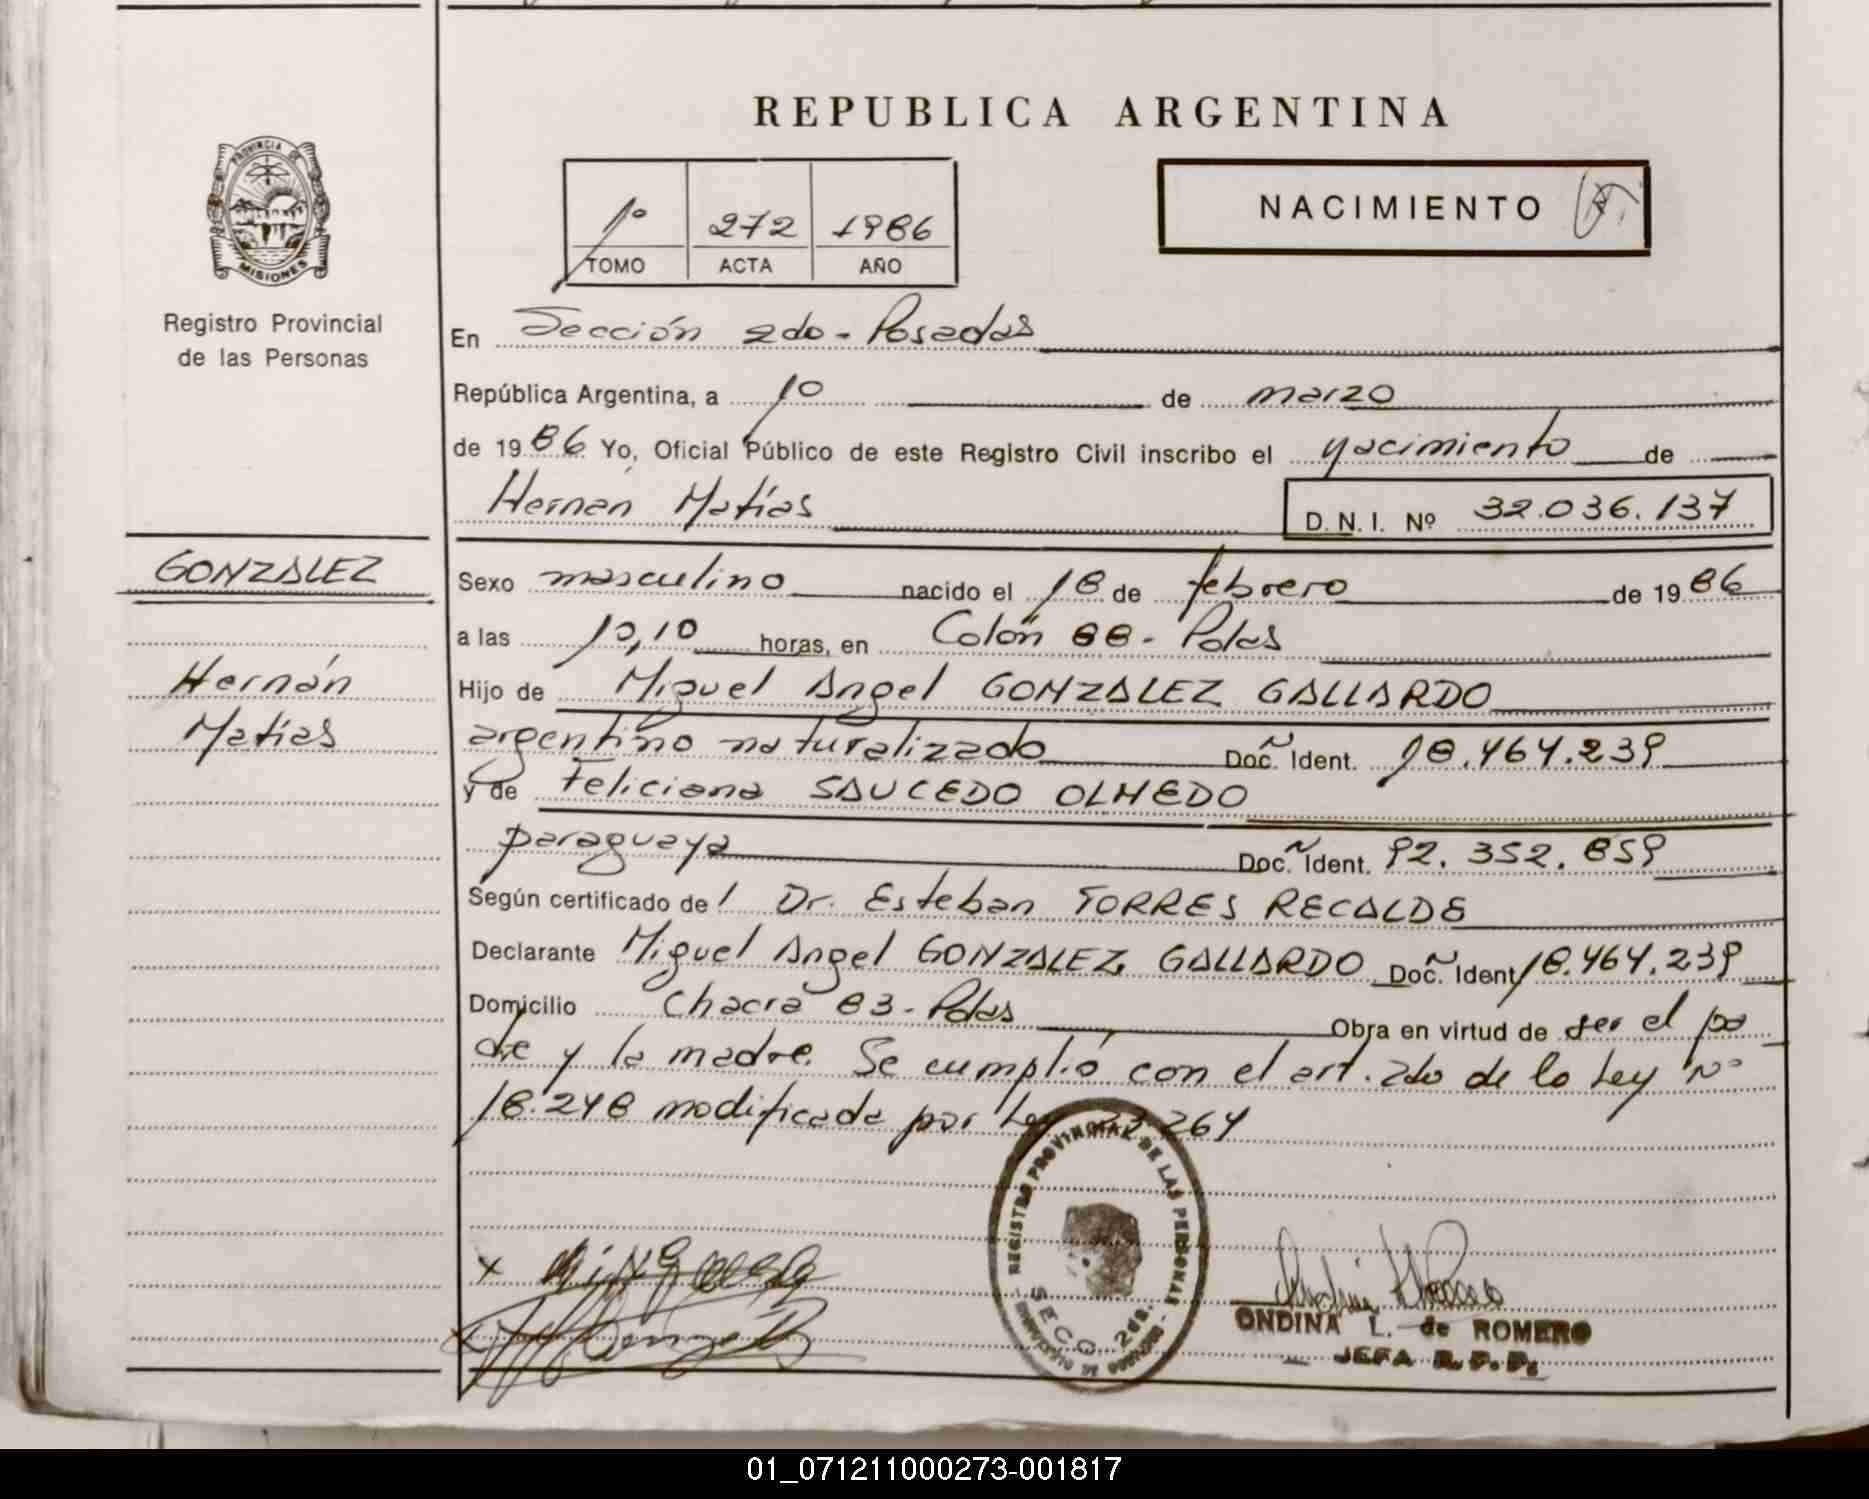 REPUBLICA ARGENTINA
PROVINCIA DE
MISIONES
Registro Provincial
de las Personas
1º 272 1986
TOMO ACTA AÑO
NACIMIENTO
En Sección 2do - Posadas
República Argentina, a 10 de marzo
de 1986 Yo, Oficial Público de este Registro Civil inscribo el nacimiento de
Hernán Matías D.N.I. Nº 32.036.137
GONZALEZ
Hernán
Matías
Sexo masculino nacido el 18 de febrero de 1986
a las 10,10 horas, en Colón 88 - Pdas
Hijo de Miguel Angel GONZALEZ GALLARDO
argentino naturalizado Doc. Ident. 18.464.239
y de Feliciana SAUCEDO OLMEDO
paraguaya Doc. Ident. 92.352.859
Según certificado del Dr. Esteban TORRES RECALDE
Declarante Miguel Angel GONZALEZ GALLARDO Doc. Ident 18.464.239
Domicilio Chacra 83 - Pdas Obra en virtud de ser el pa
dre y la madre. Se cumplió con el art. 2do de la Ley Nº
18.248 modificada por Ley 23.264
REGISTRO PROVINCIAL DE LAS PERSONAS
SECC. 2da.
ONDINA L. de ROMERO
JEFA R.P.P.
01_071211000273-001817